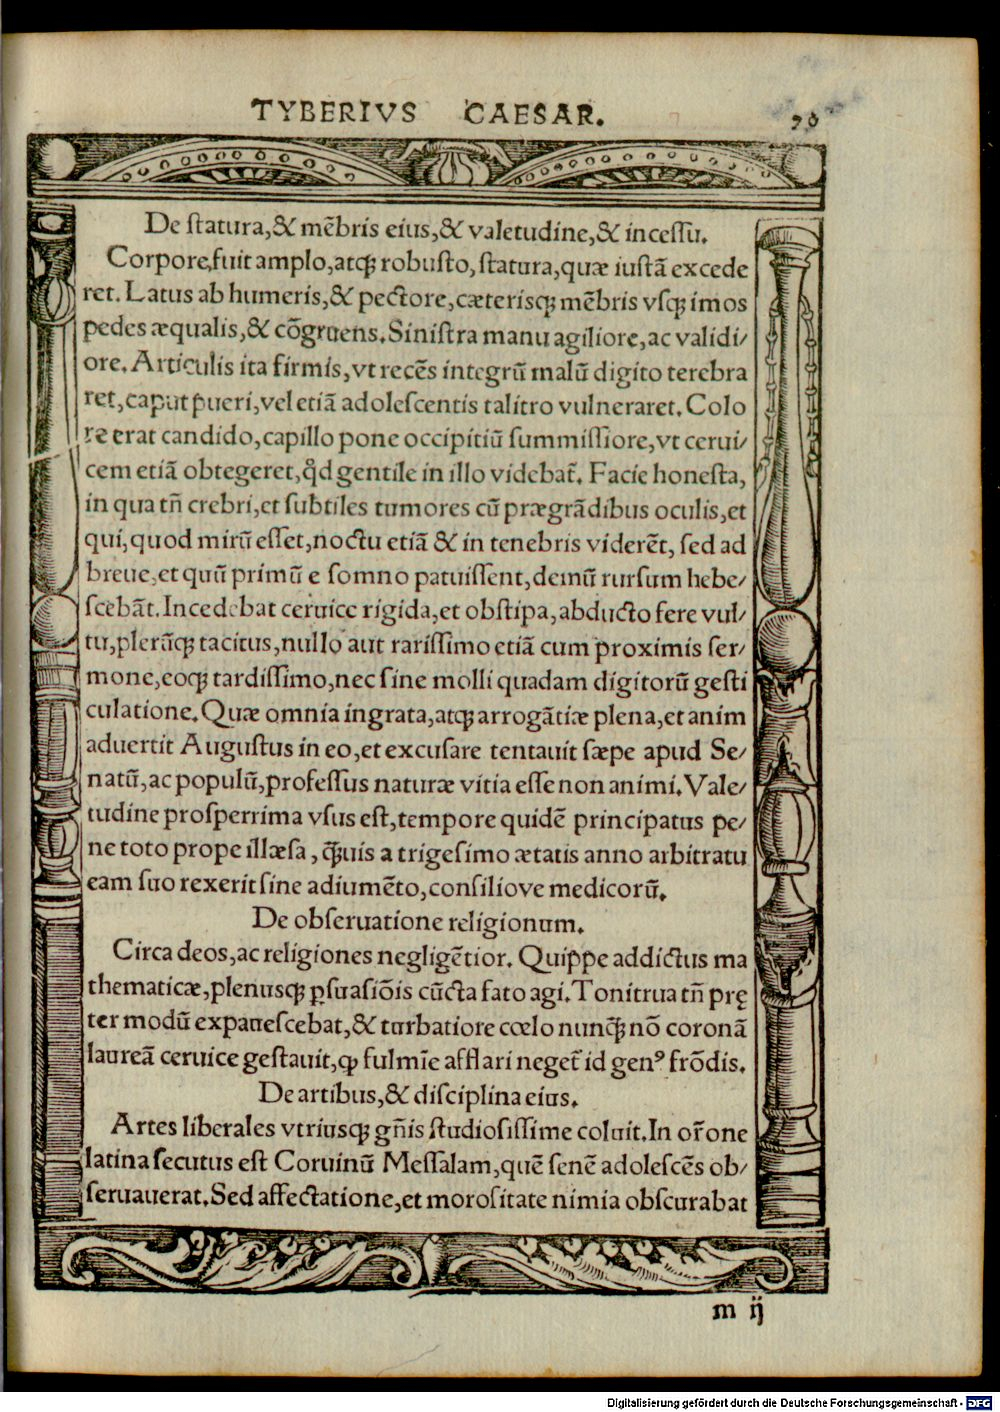 TYBERIVS CAESAR. 90
De ſtatura,& mẽbris eius,& valetudine,& inceſſu.
Corpore,fuit amplo,atqꝫ robuſto,ſtatura,quæ iuſtã excede
ret. Latus ab humeris,& pectore,cæteriſqꝫ mẽbris vſqꝫ imos
pedes æqualis,& cõgruens.Siniſtra manu agiliore,ac validi/
ore.Articulis ita firmis,vt recẽs integrũ malũ digito terebra
ret,caput pueri,vel etiã adoleſcentis talitro vulneraret.Colo
re erat candido,capillo pone occipitiũ ſummiſſiore,vt cerui/
cem etiã obtegeret,qd̊ gentile in illo videbat᷑. Facie honeſta,
in qua tñ crebri,et ſubtiles tumores cũ prægrãdibus oculis,et
qui,quod mirũ eſſet,noctu etiã & in tenebris viderẽt, ſed ad
breue,et quũ primũ e ſomno patuiſſent,demũ rurſum hebe/
ſcebãt.Incedebat ceruice rigida,et obſtipa,abducto fere vul/
tu,plerũqꝫ tacitus,nullo aut rariſſimo etiã cum proximis ſer/
mone,eoqꝫ tardiſſimo,nec ſine molli quadam digitorũ geſti
culatione.Quæ omnia ingrata,atqꝫ arrogãtiæ plena,et anim
aduertit Auguſtus in eo,et excuſare tentauit ſæpe apud Se/
natũ,ac populũ,profeſſus naturæ vitia eſſe non animi.Vale/
tudine proſperrima vſus eſt,tempore quidẽ principatus pe/
ne toto prope illæſa,q̃uis a trigeſimo ætatis anno arbitratu
eam ſuo rexerit ſine adiumẽto,conſiliove medicorũ.
De obſeruatione religionum.
Circa deos,ac religiones negligẽtior. Quippe addictus ma
thematicæ,plenuſqꝫ ꝑſuaſiõis cũcta fato agi.Tonitrua tñ prę
ter modũ expaueſcebat,& turbatiore cœlo nunq̃ nõ coronã
laureã ceruice geſtauit,ꝙ fulmĩe afflari neget᷑ id genꝰ frõdis.
De artibus,& diſciplina eius.
Artes liberales vtriuſqꝫ gñis ſtudioſiſſime coluit.In or̃one
latina ſecutus eſt Coruinũ Meſſalam,quẽ ſenẽ adoleſcẽs ob/
ſeruauerat.Sed affectatione,et moroſitate nimia obſcurabat
m ij
Digitalisierung gefördert durch die Deutsche Forschungsgemeinschaft - DFG